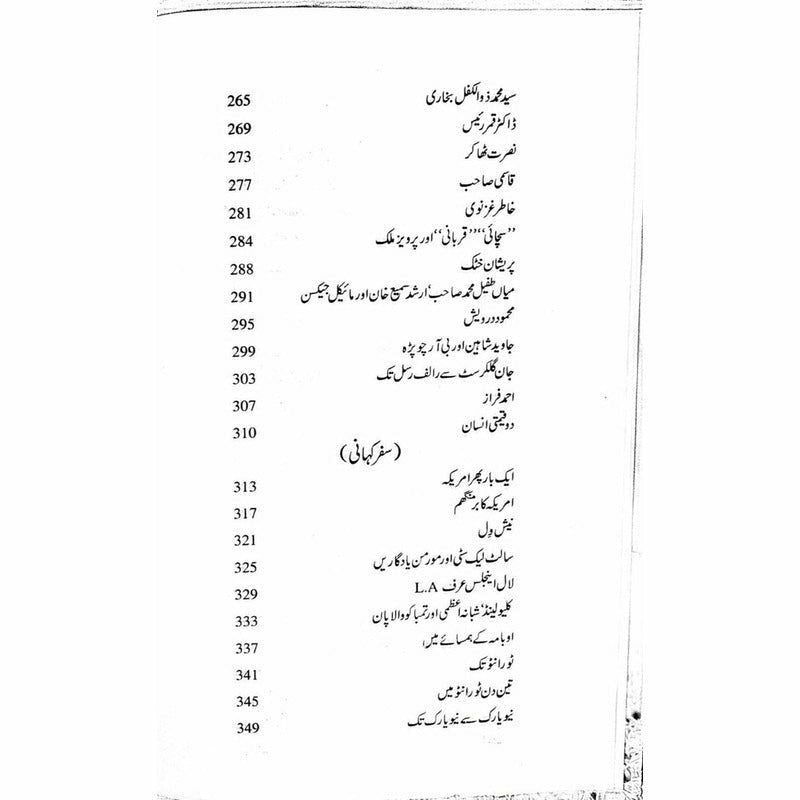 سید محمد ذوالکفل بخاری 265
ڈاکٹر قمر رئیس 269
نصرت ٹھاکر 273
قاسمی صاحب 277
خاطر غزنوی 281
’’سچائی‘‘ ’’قربانی‘‘ اور پرویز ملک 284
پریشان خٹک 288
میاں طفیل محمد صاحب‘ ارشد سمیع خان اور مائیکل جیکسن 291
محمود درویش 295
جاوید شاہین اور بی آر چوپڑہ 299
جان گلکرسٹ سے رالف رسل تک 303
احمد فراز 307
دو قیمتی انسان 310
(سفر کہانی)
ایک بار پھر امریکہ 313
امریکہ کا برمنگھم 317
نیش وِل 321
سالٹ لیک سٹی اور مورمن یادگاریں 325
لال اینجلس عرف L.A 329
کلیولینڈ‘ شبانہ اعظمی اور تمباکو والا پان 333
اوبامہ کے ہمسائے میں 337
ٹورانٹو تک 341
تین دن ٹورانٹو میں 345
نیویارک سے نیویارک تک 349